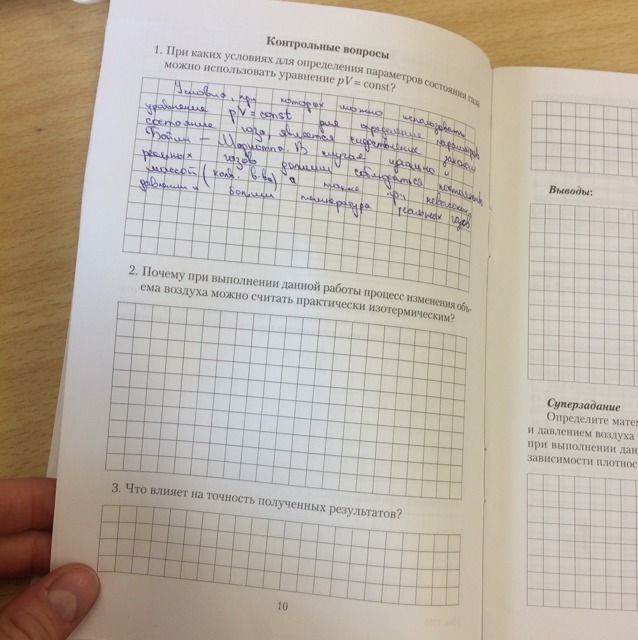 Контрольные вопросы
1. При каких условиях для определения параметров состояния газа
можно использовать уравнение pV = const?
Условия, при которых можно использовать
уравнение pV = const для определения параметров
состояние газа, является соблюдение закона
Бойля – Мариотта. В случае идеально и
реальных газов должны соблюдаться
массой (кол. в-ва) а также при небольших
давлении и температура реальных газов
2. Почему при выполнении данной работы процесс изменения объ-
ема воздуха можно считать практически изотермическим?
3. Что влияет на точность полученных результатов?
10
Выводы:
Суперзадание
Определите
и давлением воздуха
при выполнении
зависимости